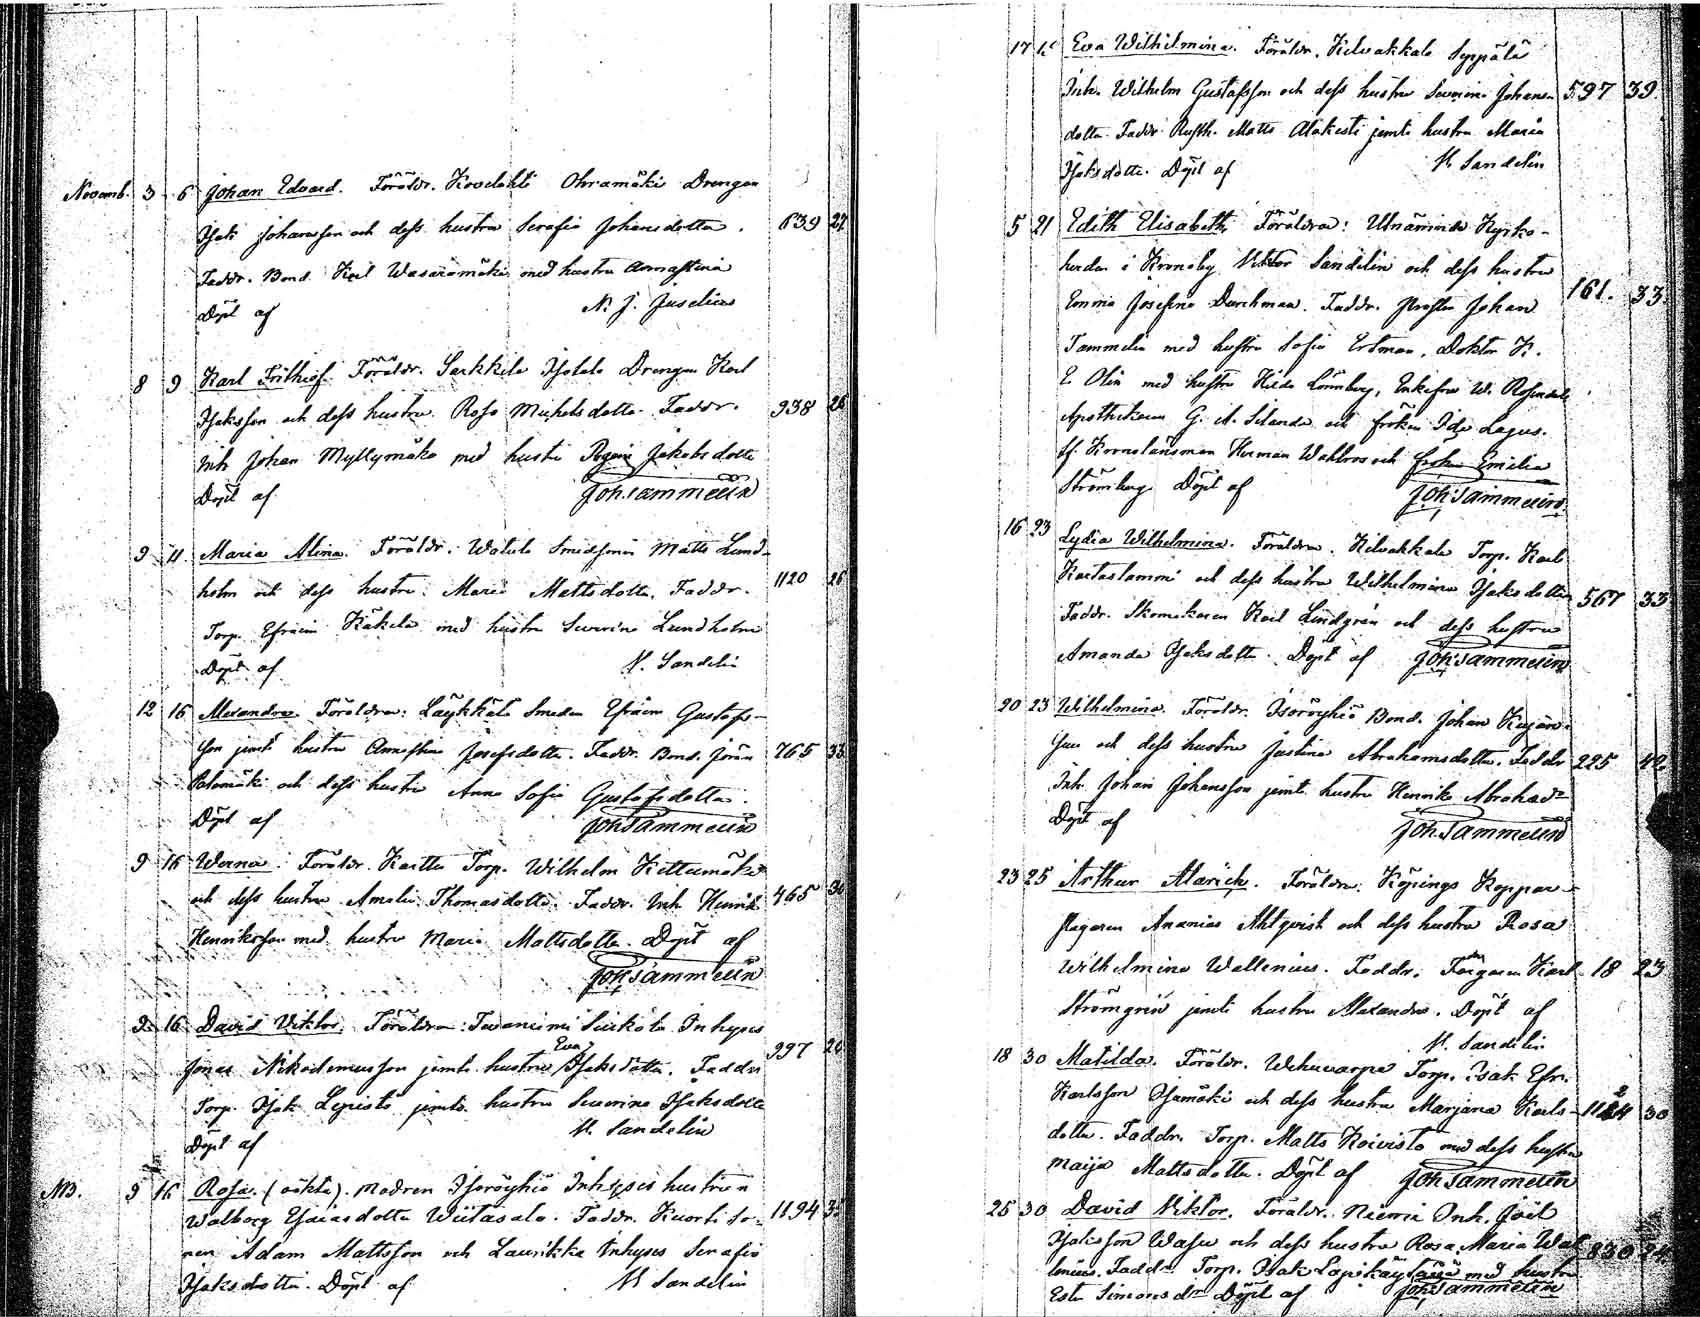 Novemb. 3 6 Johan Edvard. Föräldr. Kovelahti Ohramäki Drengen
Isak Johansson och dess hustru Serafia Johansdotter. 639 27
Faddr. Bond. Karl Wasaramäki med hustru Annastina
Döpt af N. J. Juselius
8 9 Karl Frithiof. Föräldr. Sarkkila Isotalo Drengen Karl
Isaksson och dess hustru Rosa Michelsdotter. Faddr. 938 26
Inh. Johan Myllymäki med hustru Regina Jakobsdotter
Döpt af Joh. Tammelin
9 11 Maria Alina. Föräldr. Watula Smedsonen Matts Lund-
holm och dess hustru Maria Mattsdotter. Faddr. 1120 26
Torp. Efraim Käkelä med hustru Severina Lundholm
Döpt af V. Sandelin
12 16 Alexandra. Föräldra: Läykkälä Smeden Efraim Gustafs-
son jemte hustru Annastina Josefsdotter. Faddr. Bond. Jöran 765 33
Palomäki och dess hustru Anna Sofia Gustafsdotter.
Döpt af Joh. Tammelin
9 16 Werner. Föräldr. Karttu Torp. Wilhelm Kettumäki
och dess hustru Amalia Thomasdotter. Faddr. Inh. Henrik 465 30
Henriksson med hustru Maria Mattsdotter. Döpt af
Joh. Tammelin
9 16 David Viktor. Föräldra: Tevaniemi Inhyses
Eva
Jonas Nikodemusson jemte hustru Isaksdotter. Faddr. 997 20
Torp. Isak Lepistö jemte hustru Severina Isaksdotter
Döpt af V. Sandelin
NB. 9 16 Rosa. (oäkta). Modren Isoröyhiö Inhyses hustrun
Walborg Esaiasdotter Wiitasalo. Faddr. Kuorti So- 1194 35
nen Adam Mattsson och Laurikka Inhyses Serafia
Isaksdotter. Döpt af V. Sandelin
17 Eva Wilhelmina. Föräldr. Kilvakkala Seppälä
Inh. Wilhelm Gustafsson och dess hustru Severina Johans- 597 39
dotter. Faddr. Rusth. Matts Alakesti jemte hustru Maria
Isaksdotter. Döpt af V. Sandelin
5 21 Edith Elisabeth. Föräldra: Utnämnde Kyrko-
herden i Kronoby Viktor Sandelin och dess hustru
Emma Josefina Durchman. Faddr. Prosten Johan 161. 33
Tammelin med hustru Sofia Ertman, Doktor K.
E. Olin med hustru Hilda Lönnberg, Enkefru W. Rosendal
Apothekaren G. A. Selander och fröken Ida Lagus.
tf. Kronolänsman Herman Wahlroos och fröken Emilia
Strömberg Döpt af Joh. Tammelin
16 23 Lydia Wilhelmina. Föräldra. Kilvakkala Torp. Karl
Kartaslammi och dess hustru Wilhelmina Isaksdotter 567 33
Faddr. Skomakaren Karl Lindgrén och dess hustru
Amanda Isaksdotter. Döpt af Joh. Tammelin
20 23 Wilhelmina. Föräldr. Isoröyhiö Bond. Johan Kujan-
suu och dess hustru Justina Abrahamsdotter. Faddr. 225 42
Inh. Johan Johansson jemte hustru Henrika Abrahsdr
Döpt af Joh. Tammelin
23 25 Arthur Alarich. Föräldra. Köpings Koppar-
slagaren Ananias Ahlqvist och dess hustru Rosa
Wilhelmina Wallenius. Faddr. Färgaren Karl 18 23
Strömgrén jemte hustru Alexandra. Döpt af
V. Sandelin
18 30 Matilda. Föräldr. Wehuvarpe Torp. Isak Efr.
Karlsson Isamäki och dess hustru Marjana Karls- 1124 30
dotter. Faddr. Torp. Matts Koivisto med dess hustru
Maija Mattsdotter. Döpt af Joh. Tammelin
25 30 David Viktor. Föräldr. Niemi Inh. Joel
Isaksson Wasu och dess hustru Rosa Maria Wal- 830 24
lenius. Faddr. Torp. Isak Lapikäyt med hustru
Ester Simonsdr Döpt af Joh. Tammelin